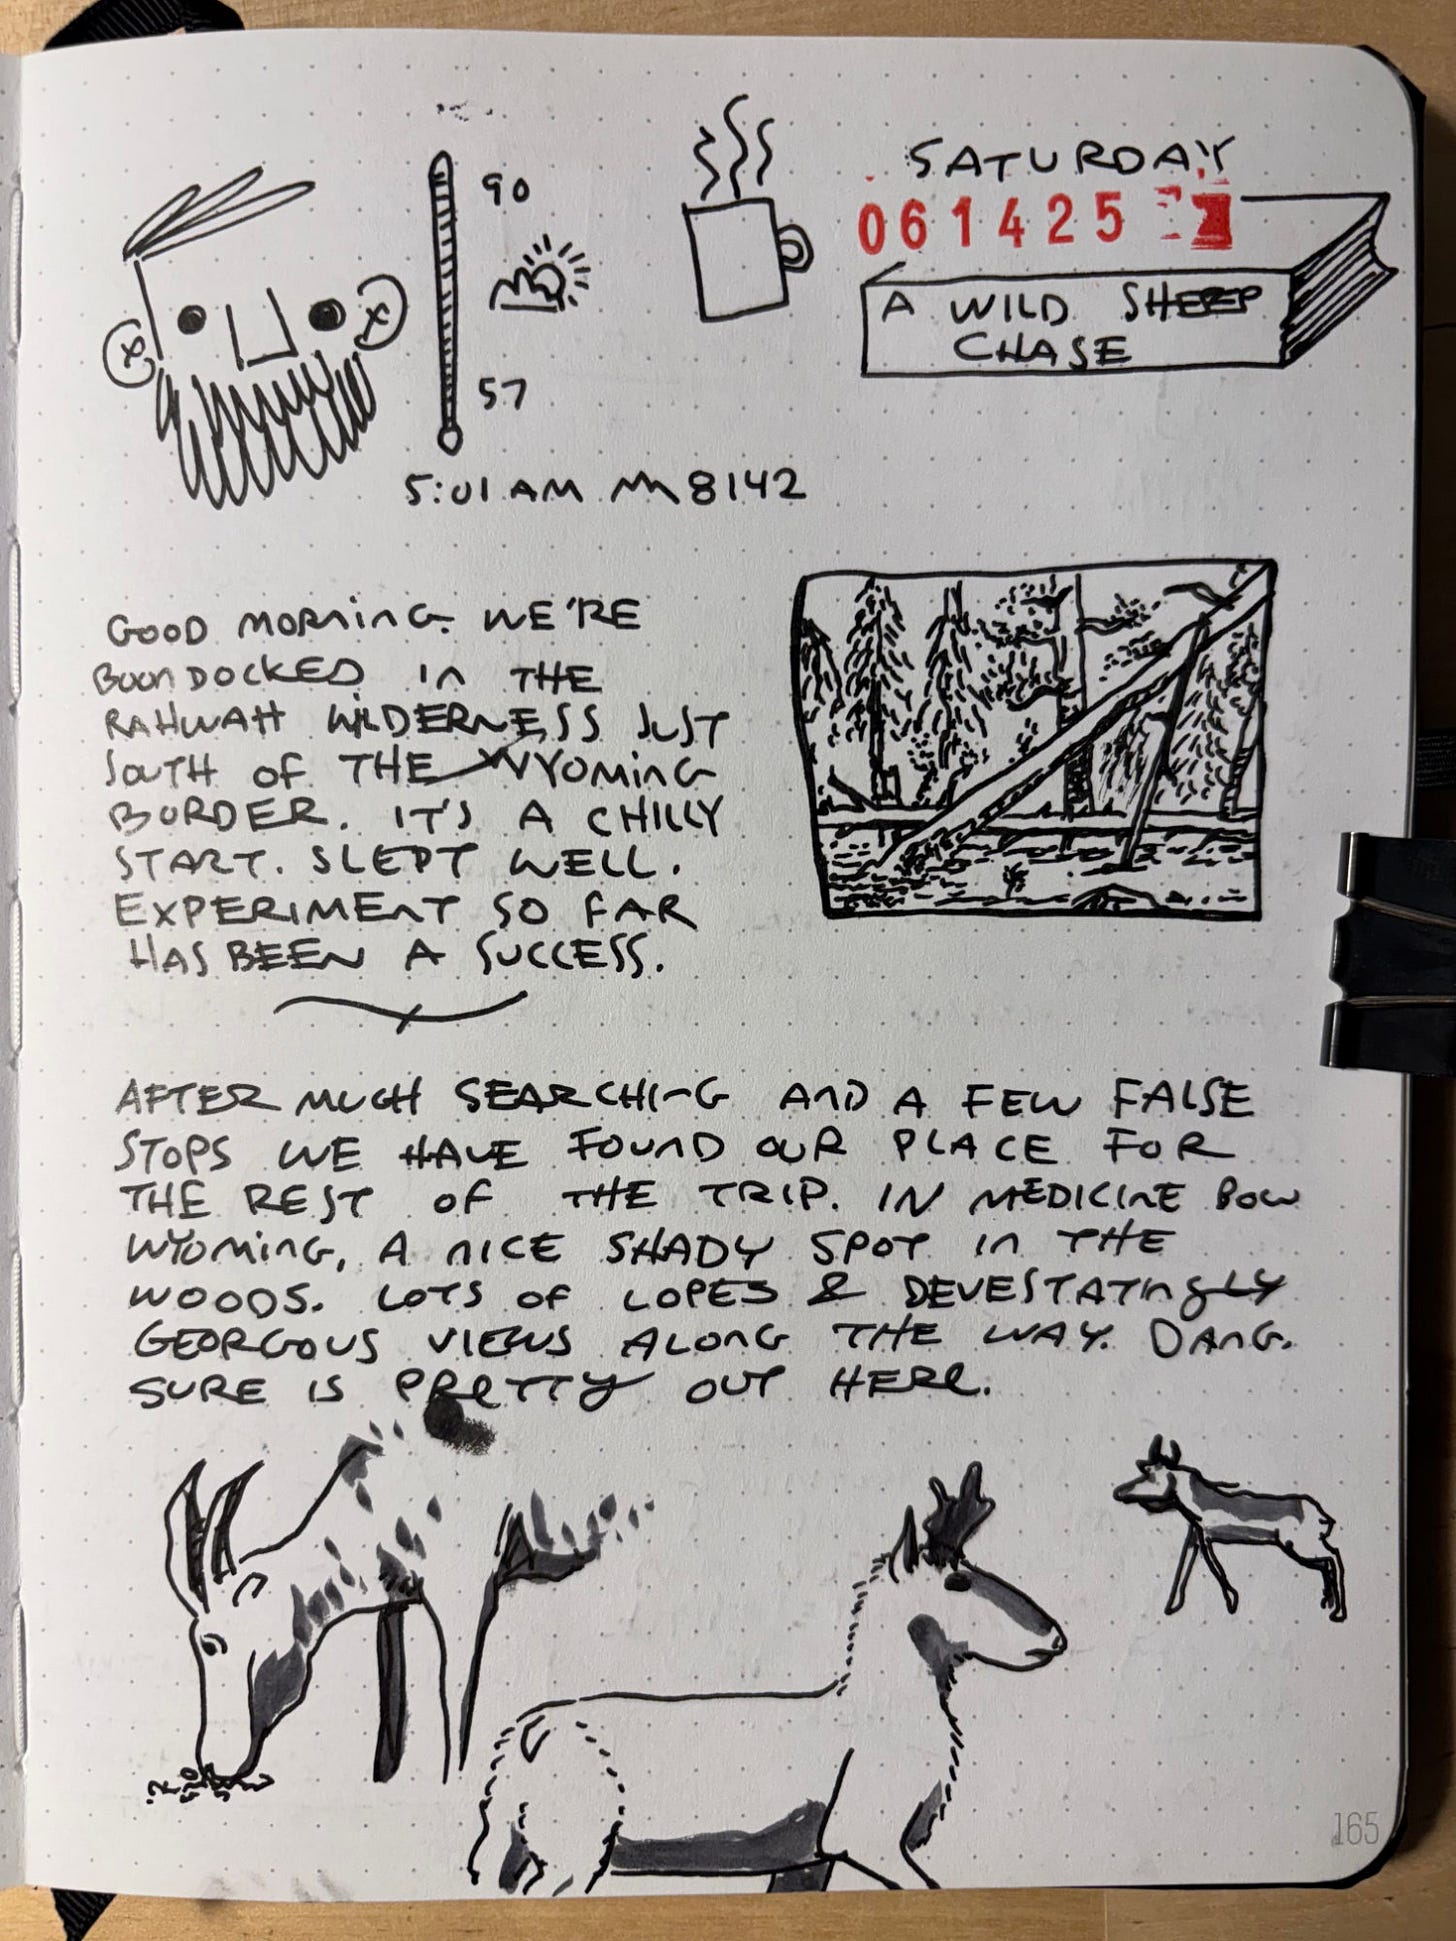 90
57
5:01 AM 8142
SATURDAY
061425
A WILD SHEEP
CHASE
GOOD MORNING. WE'RE
BOONDOCKED IN THE
RAHWAH WILDERNESS JUST
SOUTH OF THE WYOMING
BORDER. IT'S A CHILLY
START. SLEPT WELL.
EXPERIMENT SO FAR
HAS BEEN A SUCCESS.
AFTER MUCH SEARCHING AND A FEW FALSE
STOPS WE HAVE FOUND OUR PLACE FOR
THE REST OF THE TRIP. IN MEDICINE BOW
WYOMING, A NICE SHADY SPOT IN THE
WOODS. LOTS OF LOPES & DEVESTATINGLY
GEORGOUS VIEWS ALONG THE WAY. DANG.
SURE IS PRETTY OUT HERE.
165